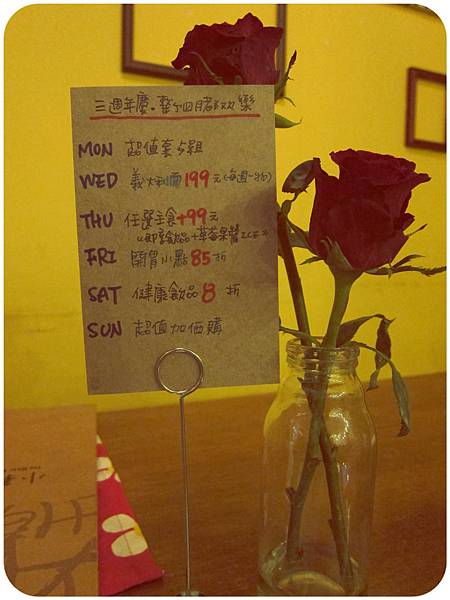 三週年慶.整個月都歡樂
MON 超值套餐組
WED 義大利麵199元(每週一~
THU 任選主食+99元
飲品+草莓果醬ICE
FRI 開胃小點85折
SAT 健康飲品8折
SUN 超值加価購
小